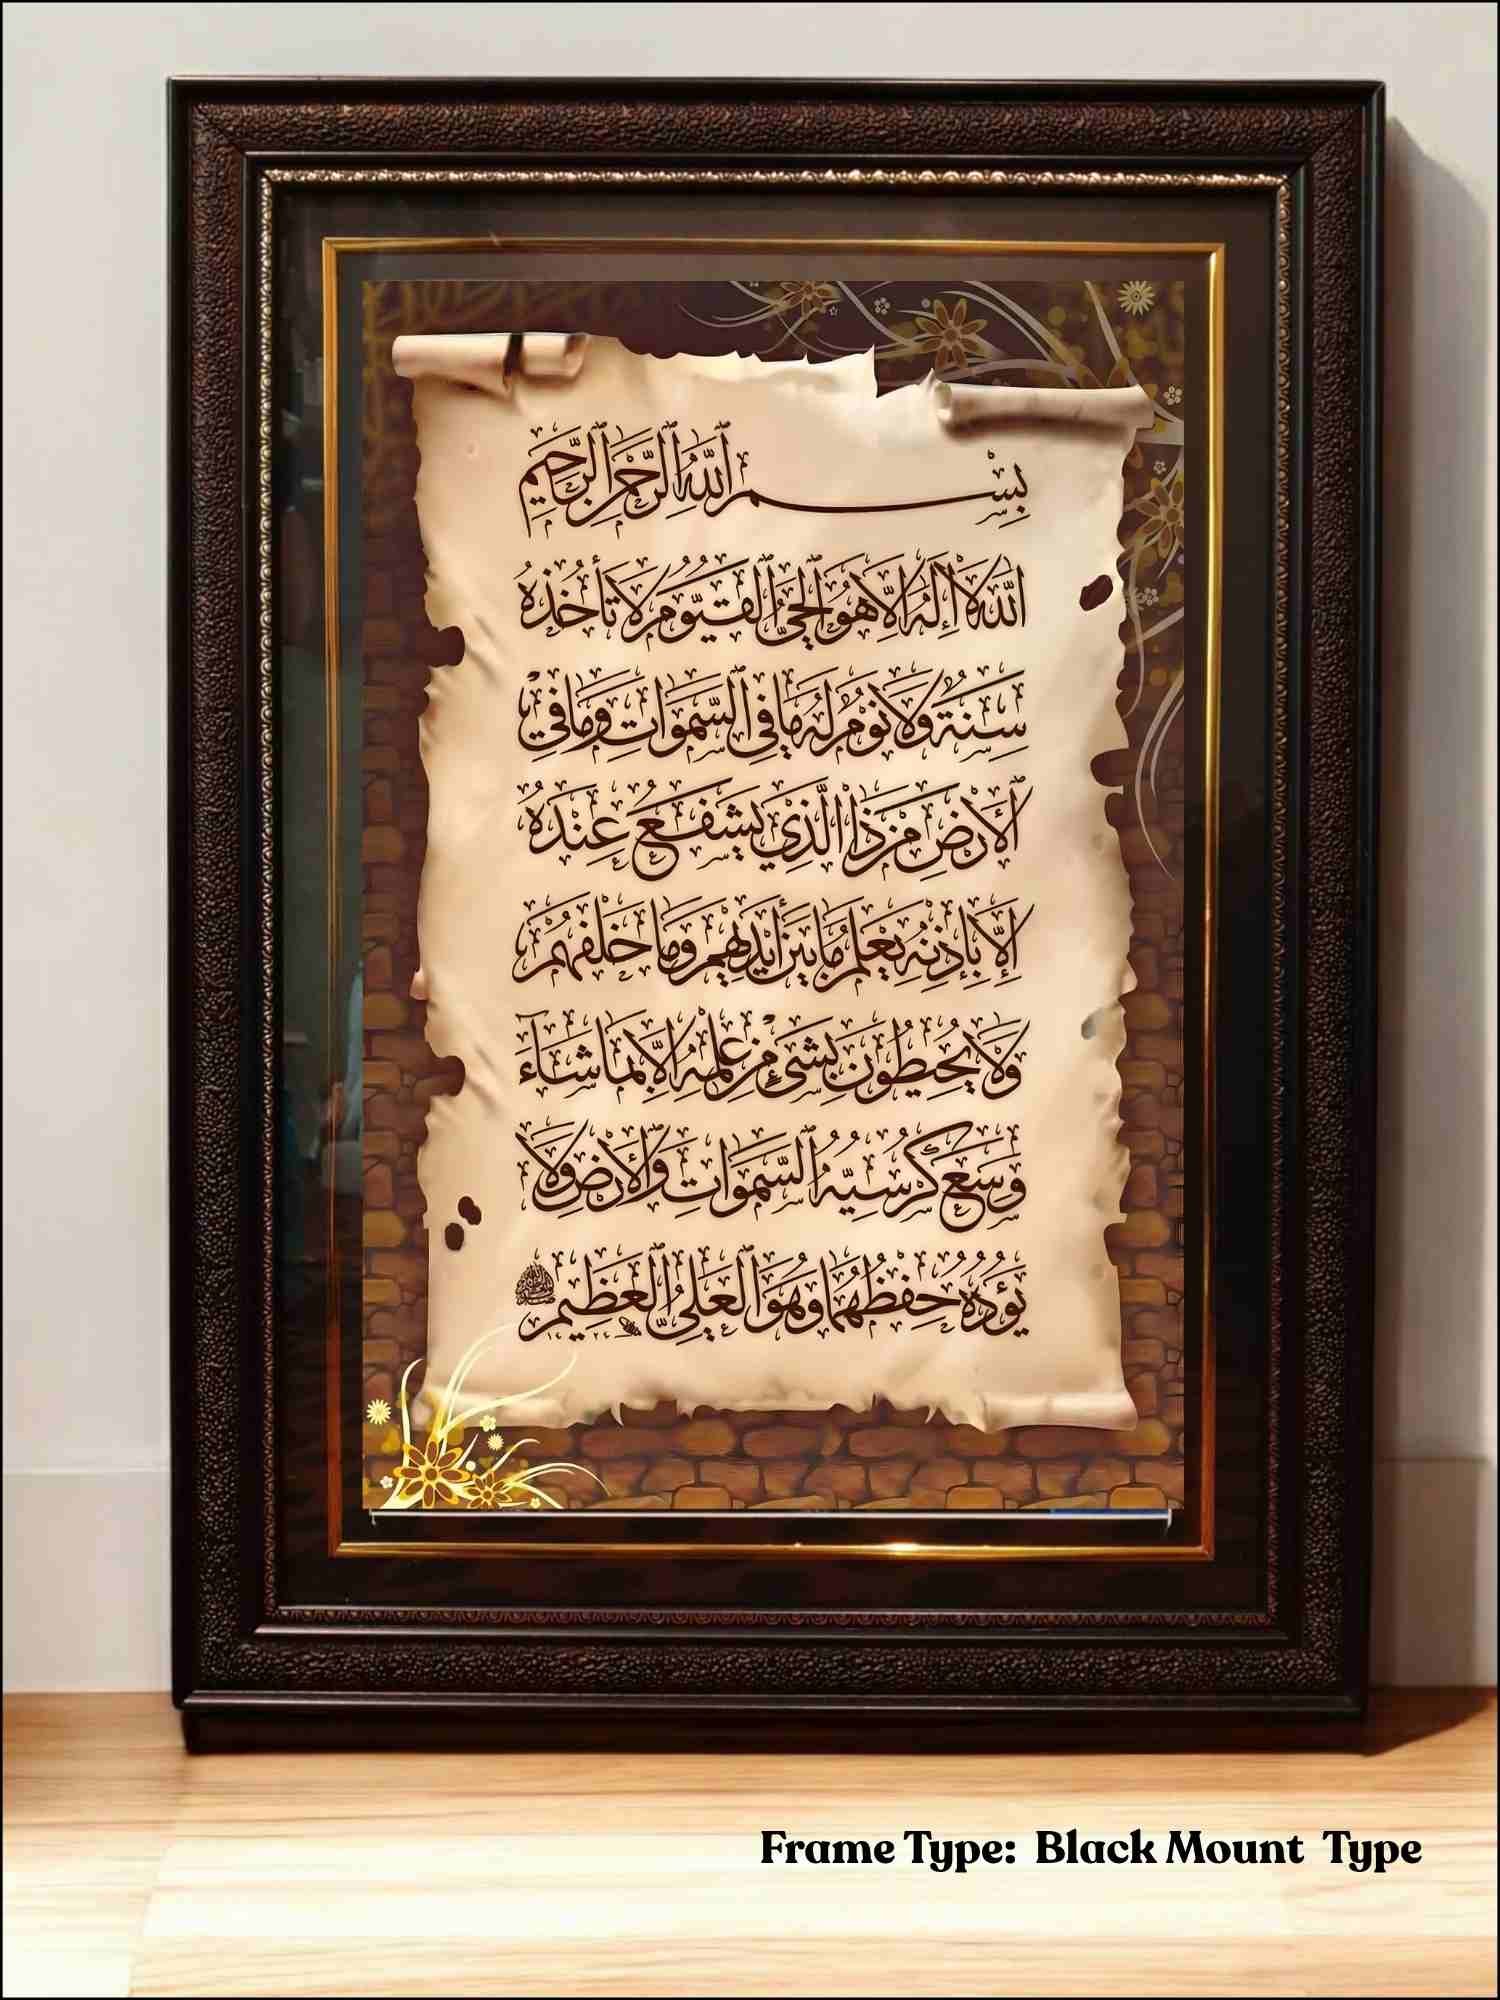 بِسْمِ اللَّهِ الرَّحْمَنِ الرَّحِيمِ
اللَّهُ لَا إِلَهَ إِلَّا هُوَ الْحَيُّ الْقَيُّومُ لَا تَأْخُذُهُ
سِنَةٌ وَلَا نَوْمٌ لَهُ مَا فِي السَّمَوَاتِ وَمَا فِي
الْأَرْضِ مَنْ ذَا الَّذِي يَشْفَعُ عِنْدَهُ
إِلَّا بِإِذْنِهِ يَعْلَمُ مَا بَيْنَ أَيْدِيهِمْ وَمَا خَلْفَهُمْ
وَلَا يُحِيطُونَ بِشَيْءٍ مِنْ عِلْمِهِ إِلَّا بِمَا شَاءَ
وَسِعَ كُرْسِيُّهُ السَّمَوَاتِ وَالْأَرْضَ وَلَا
يَؤُدُهُ حِفْظُهُمَا وَهُوَ الْعَلِيُّ الْعَظِيمُ
Frame Type: Black Mount Type